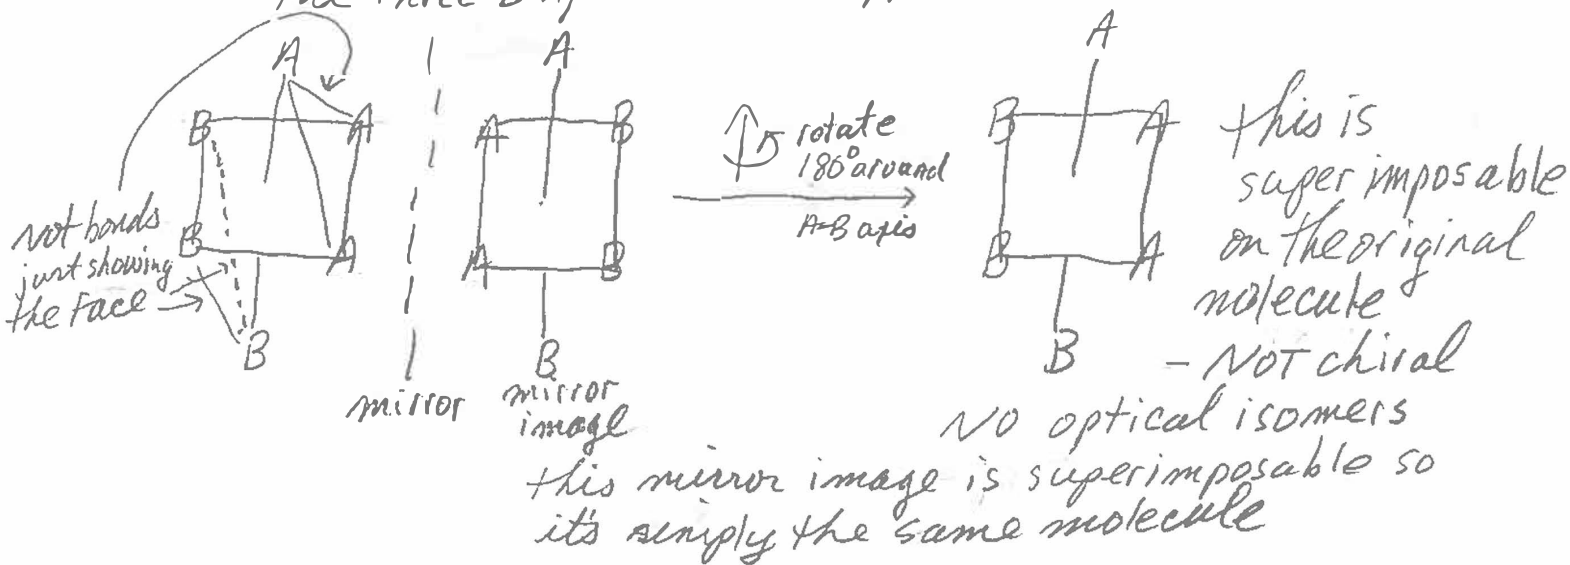 A
B A
B A
B
Not bonds
just showing
the Face
mirror
A
A B
A B
B
mirror
image
rotate
180° around
A-B axis
A
B A
B A
B
this is
super imposable
on the original
molecule
- NOT chiral
NO optical isomers
this mirror image is superimposable so
it's simply the same molecule